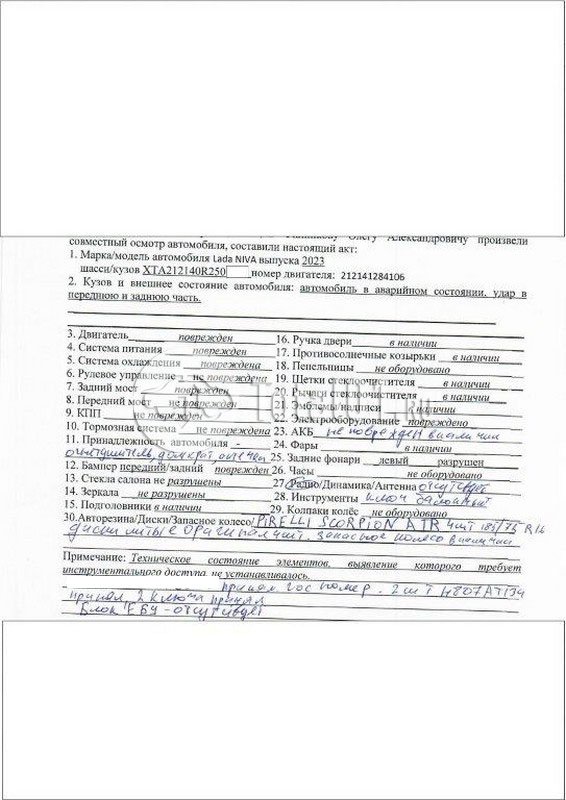 Олегу Александровичу произвели
совместный осмотр автомобиля, составили настоящий акт:
1. Марка/модель автомобиля Lada NIVA выпуска 2023
шасси/кузов ХТА212140R250 номер двигателя: 212141284106
2. Кузов и внешнее состояние автомобиля: автомобиль в аварийном состоянии. удар в
переднюю и заднюю часть.
3. Двигатель поврежден 16. Ручка двери в наличии
4. Система питания поврежден 17. Противосолнечные козырьки в наличии
5. Система охлаждения повреждена 18. Пепельницы не оборудовано
6. Рулевое управление не повреждена 19. Щетки стеклоочистителя в наличии
7. Задний мост поврежден 20. Рычаги стеклоочистителя в наличии
8. Передний мост не поврежден 21. Эмблемы/надписи в наличии
9. КПП не поврежден 22. Электрооборудование повреждено
10. Тормозная система не повреждена 23. АКБ не поврежден в наличии
11. Принадлежность автомобиля - 24. Фары в наличии
огнетушитель, домкрат, аптечка 25. Задние фонари левый разрушен
12. Бампер передний/задний поврежден 26. Часы не оборудовано
13. Стекла салона не разрушены 27. Радио/Динамика/Антенна отсутствует
14. Зеркала не разрушены 28. Инструменты ключ балонный
15. Подголовники в наличии 29. Колпаки колёс не оборудовано
30. Авторезина/Диски/Запасное колесо/ PIRELLI SCORPION ATR 4шт 185/75 R16
диски литые оригинал 4шт. запасное колесо в наличии
Примечание: Техническое состояние элементов, выявление которого требует
инструментального доступа, не устанавливалось.
принял гос номер. 2шт Н807АТ134
принял 2 ключа принял
Блок ЕБУ - отсутствует